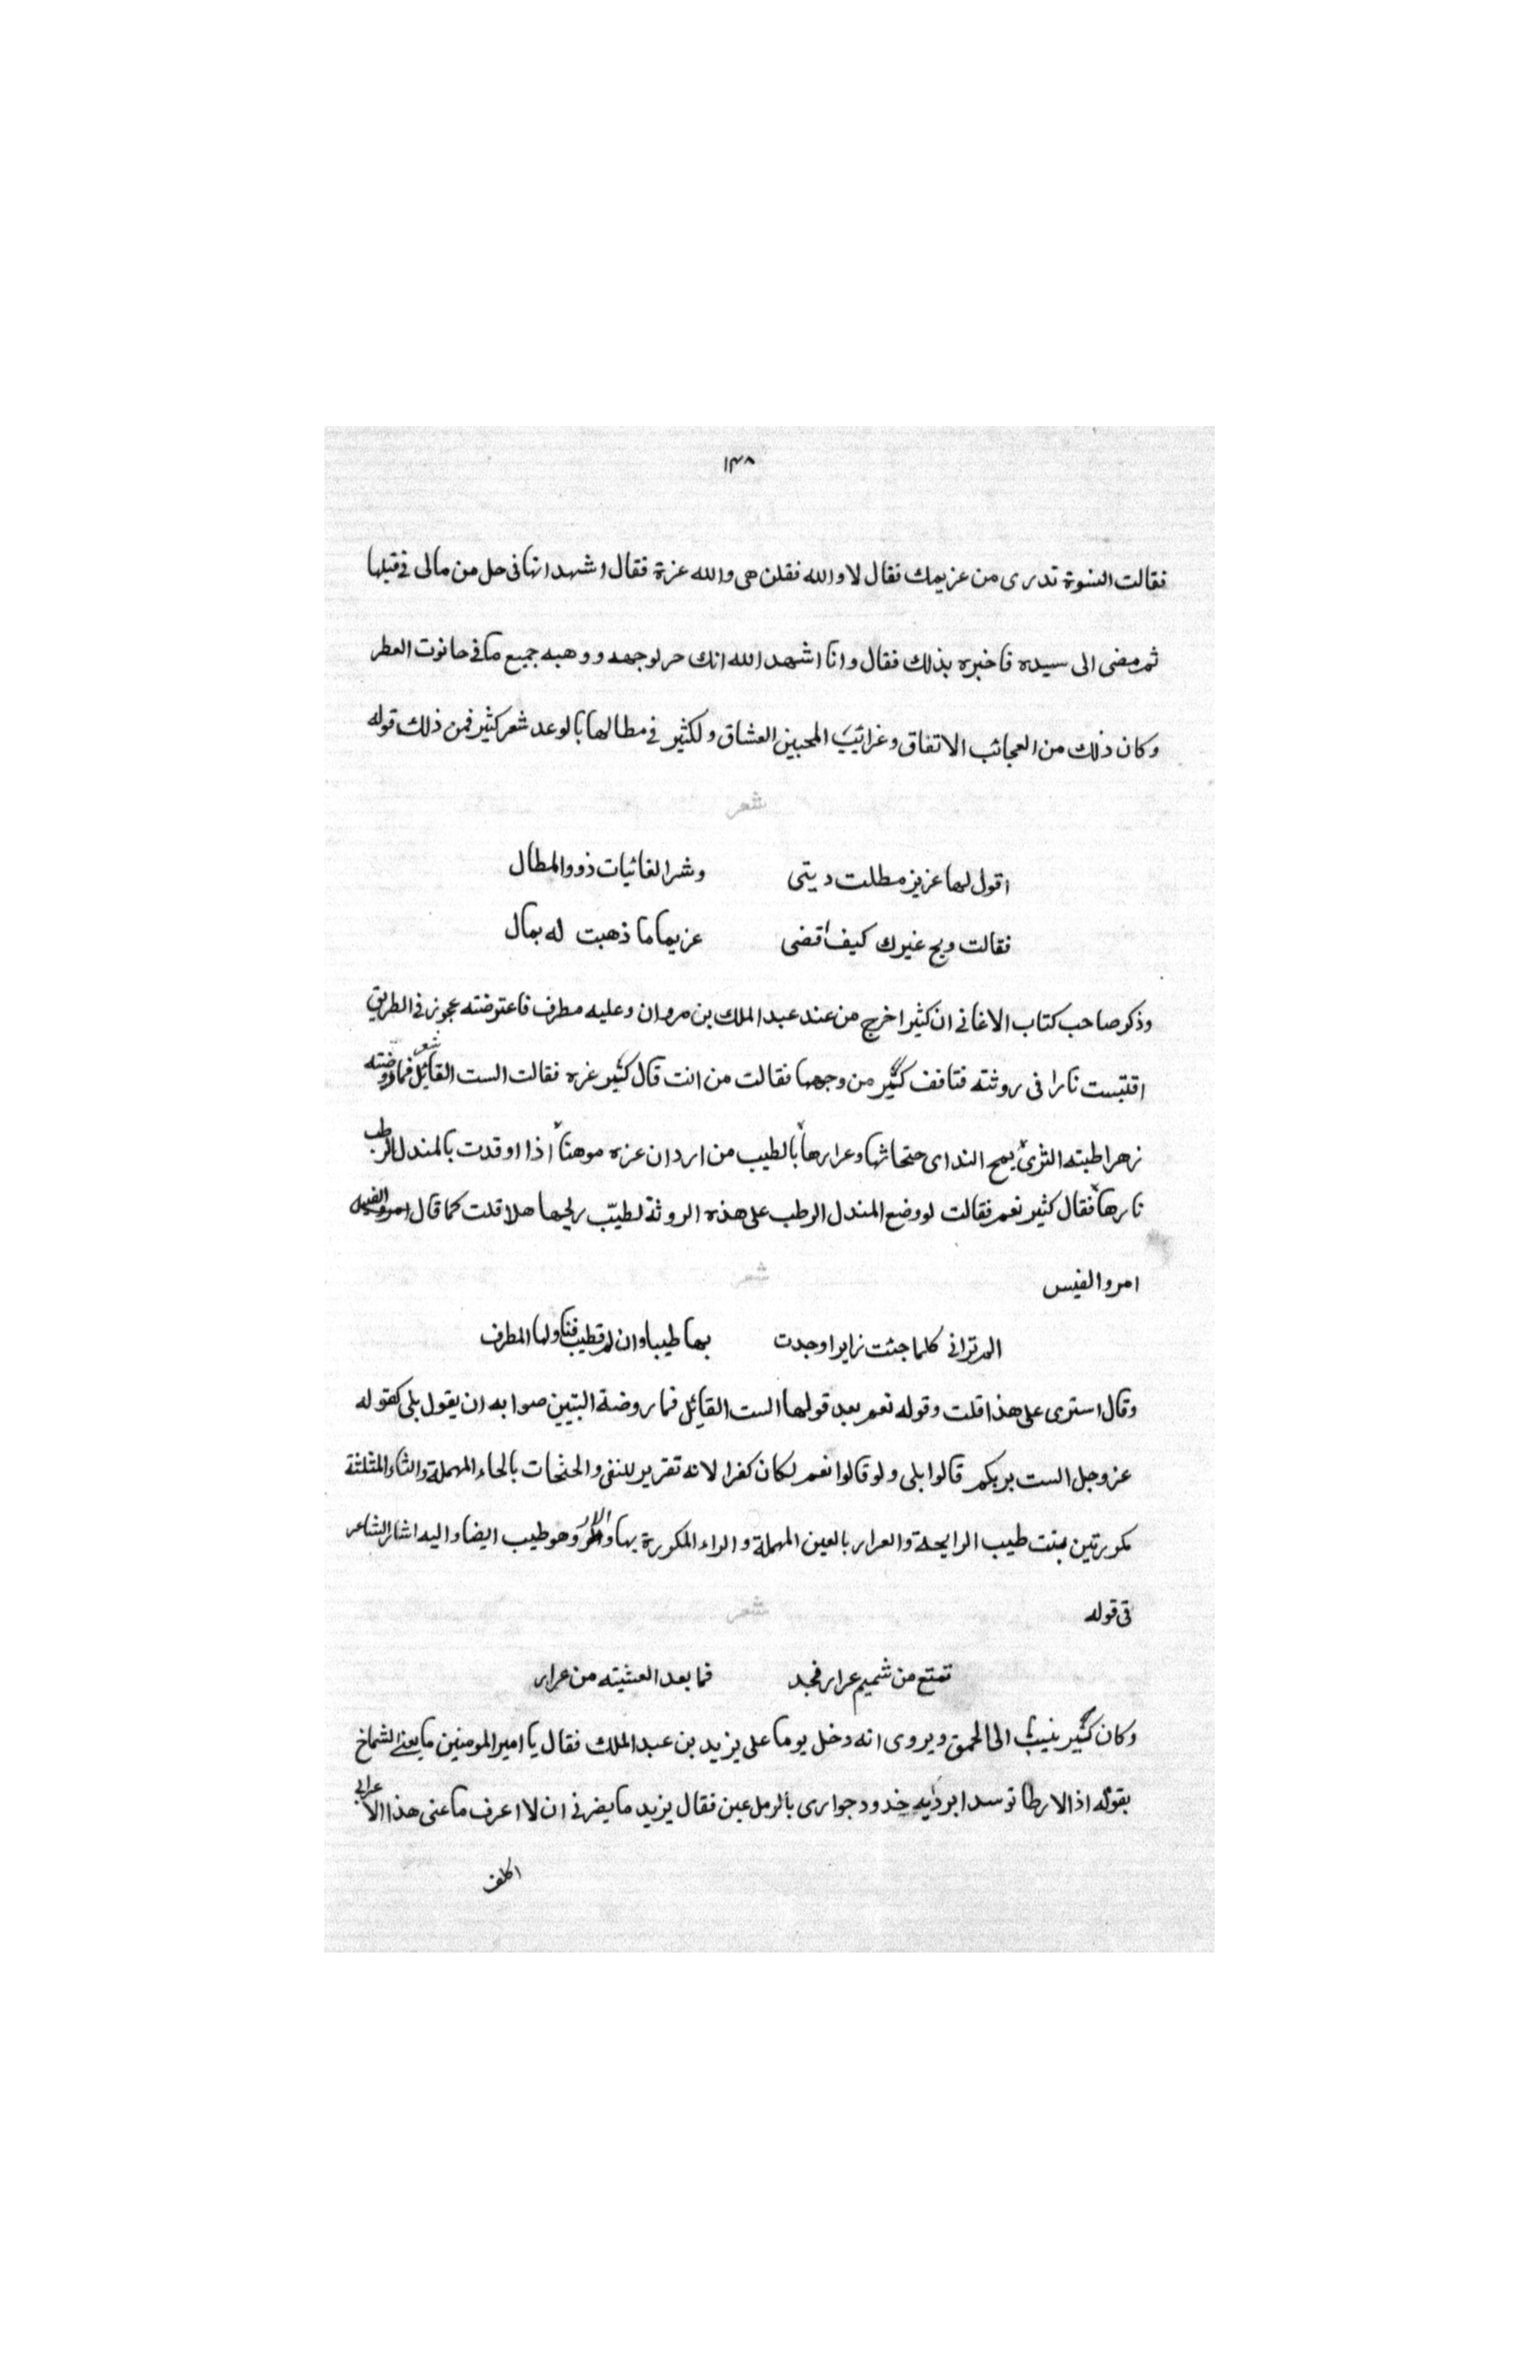 ١٣٨
فقالت النسوة تدرى من عزيمك فقال لا والله فقلن هى والله عزة فقال اشهد انها فى حل من مالى فى قبلها
ثم مضى الى سيده فاخبره بذلك فقال وانا اشهد الله انك حر لوجهه ووهبه جميع ما فى حانوت العطر
وكان ذلك من العجائب الاتفاق وغرائيب المحبين العشاق ولكثير فى مطالها بالوعد شعر كثير فمن ذلك قوله
شعر
اقول لها عزيز مطلت ديتى وشر الغانيات ذوو المطال
فقالت ويح غيرك كيف اقضى عزيما ما ذهبت له بمال
وذكر صاحب كتاب الاغانى ان كثيرا خرج من عند عبد الملك بن مروان وعليه مطرف فاعتوضته عجوز فى الطريق
اقتبست نارا فى روثته فتافف كثير من وجهها فقالت من انت قال كثير عزه فقالت الست القائل شعر فما روضته
زهرا طبته الثرى يمج الندا جثجاثها وعرارها بالطيب من اردان عزه موهنا اذا اوقدت بالمندل الرطب
نارها فقال كثير نعم فقالت لو وضع المندل الرطب على هذه الروثة لطيب ريحها هلا قلت كما قال
امرو القيس
شعر
الم ترانى كلما جئت زايرا وجدت بها طيبا وان لم تطيب فناولها المطرف
وقال استرى على هذا قلت وقوله نعم بعد قولها الست القايل فما روضة التبيين صوابه ان يقول بلى كقوله
عز وجل الست بربكم قالوا بلى ولو قالوا نعم لكان كفرا لانه تقرير للنفى والحثحات بالحاء المهملة والثاء المثلثة
مكورتين بنت طيب الرايحة والعرار بالعين المهملة والراء المكورة بها وهو طيب ايضا واليه اشار الشاعر
فى قوله
شعر
تمتع من شميم عرار نجد فما بعد العشيته من عرار
وكان كثير ينيب الى الحمق ويروى انه دخل يوما على يزيد بن عبد الملك فقال يا امير المومنين ما يعنى الشماخ
بقوله اذ الارطا توسد ابرديه خدود جوارى بالرمل عين فقال يزيد ما يضرنى ان لا اعرف ما عنى هذا الاعرابى